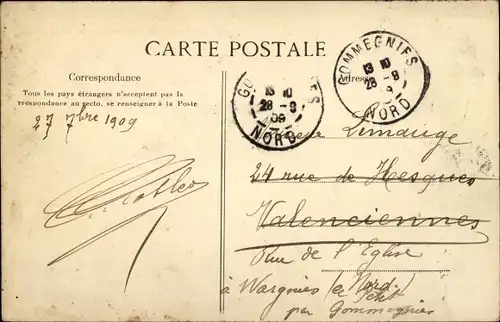 CARTE POSTALE
Correspondance
Tous les pays étrangers n'acceptent pas la
correspondance au recto, se renseigner à la Poste
27 7bre 1909
GOMMEGNIES
13 10
28 - 9
09
NORD
GOMMEGNIES
13 10
28 - 9
9
NORD
Limauge
24 rue de Hesques
Valenciennes
Rue de l'Eglise
à Wargnies (Nord)
Petit
par Gommegnies